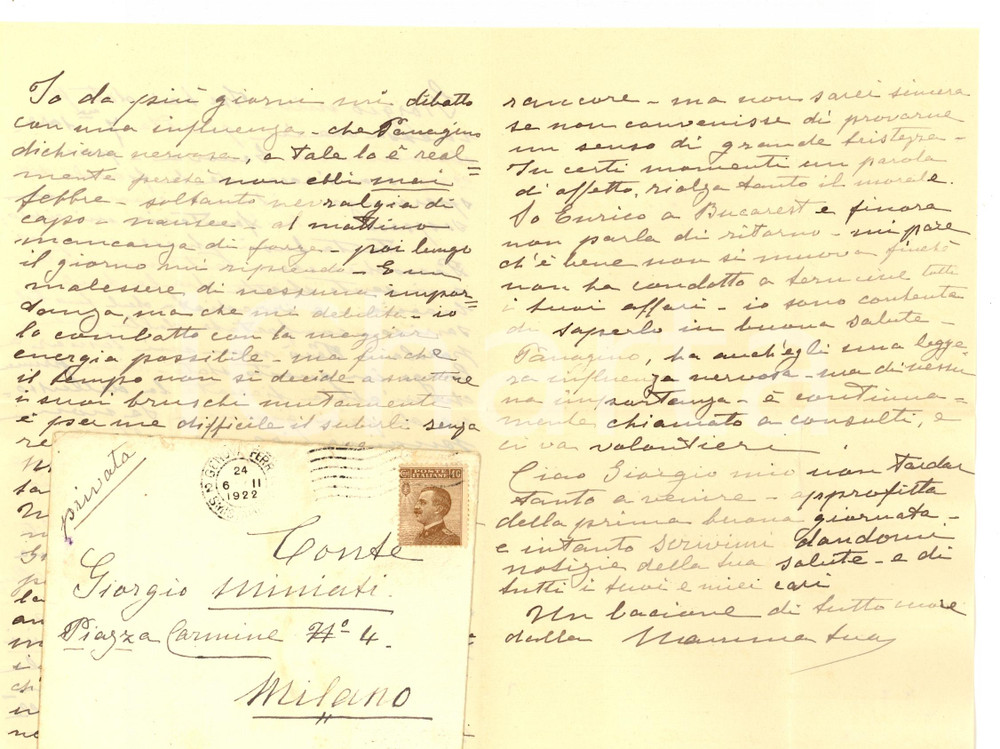 Io da più giorni mi dibatto
con una influenza - che Panagino
dichiara nervosa, e tale lo è real=
mente perchè non ebbi mai
febbre - soltanto nevralgia di
capo - nausee - al mattino
mancanza di forze - poi lungo
il giorno mi riprendo - E un
malessere di nessuna impor=
tanza, ma che mi debilita - io
lo combatto con la maggior
energia possibile - ma finchè
il tempo non si decide a smettere
i suoi bruschi mutamenti
è per me difficile il subirli senza
rancore - ma non sarei sincera
se non convenisse di provarne
un senso di grande tristezza -
In certi momenti un parola
d'affetto, rialza tanto il morale.
So Enrico a Bucarest e finora
non parla di ritorno - mi pare
ch'è bene non si muova finchè
non ha condotto a termine tutti
i suoi affari - io sono contenta
di saperlo in buona salute -
Panagino, ha anch'egli una legge=
ra influenza nervosa - ma di nessu
na importanza - è continua=
mente chiamato a consulti, e
ci va volontieri
Ciao Giorgio mio non tardar
tanto a venire - approfitta
della prima buona giornata -
e intanto scrivimi dandomi
notizie della tua salute - e di
tutti i tuoi e miei cari
Un bacione di tutto cuore
dalla Mamma tua
privata
24
6 II
1922
POSTE ITALIANE
Conte
Giorgio Miniati.
Piazza Carmine No 4.
Milano